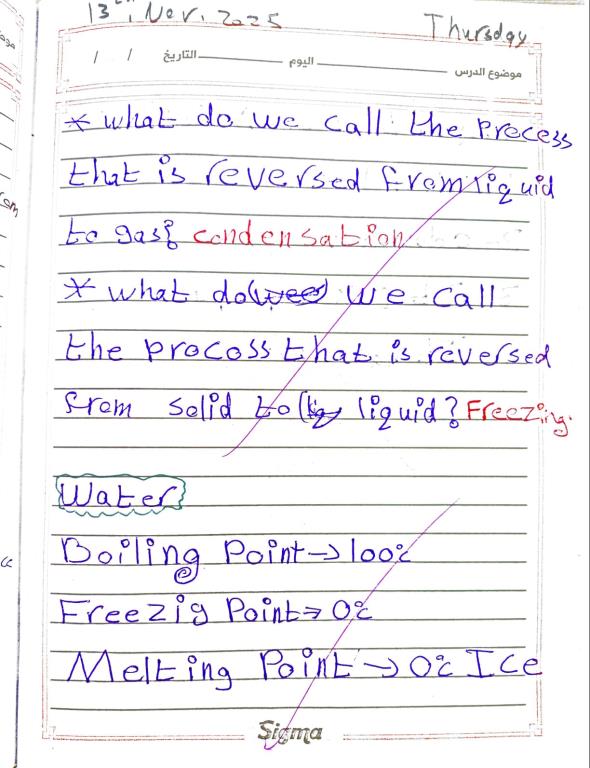 13th, Nov. 2025 Thursday
موضوع الدرس اليوم التاريخ / /
* what do we call the Precess
that is reversed from liquid
to gas? condensation
* what do we call
the procoss that is reversed
from solid to liquid? Freezing.
Water
Boiling Point → 100°c
Freezig Point → 0°c
Melting Point → 0°c Ice
Sigma